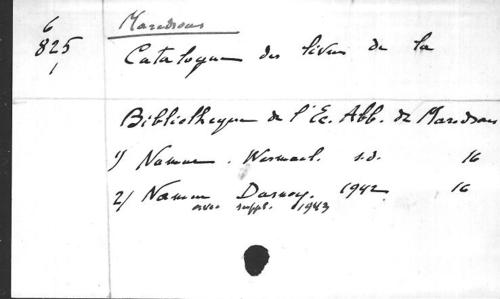 6
825
1
Maredsous
Catalogue des livres de la
Bibliothèque de l'Ec. Abb. de Maredsous
1) Namur. Wesmael. s.d. 16
2) Namur Dasnoy. 1942 16
avec suppl. 1943